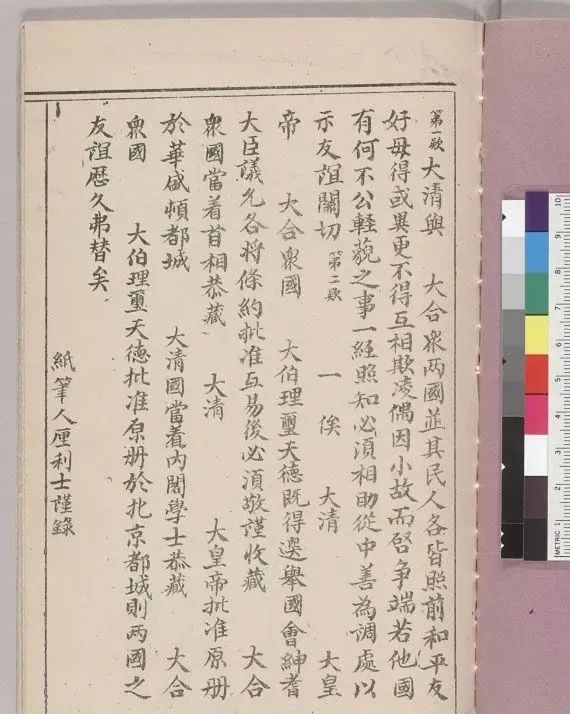 第一欵 大清與 大合衆兩國並其民人各皆照前和平友
好毋得或異更不得互相欺凌偶因小故而啓争端若他國
有何不公輕藐之事一經照知必須相助從中善為調處以
示友誼關切 第二欵 一俟 大清 大皇
帝 大合衆國 大伯理璽天德既得選舉國會紳耆
大臣議允各将條約批准互易後必須敬謹收藏 大合
衆國當着首相恭藏 大清 大皇帝批准原册
於華盛頓都城 大清國當着内閣學士恭藏 大合
衆國 大伯理璽天德批准原册於北京都城則兩國之
友誼歷久弗替矣
紙筆人厘利士謹錄
METRIC 1 2 3 4 5 6 7 8 9 10